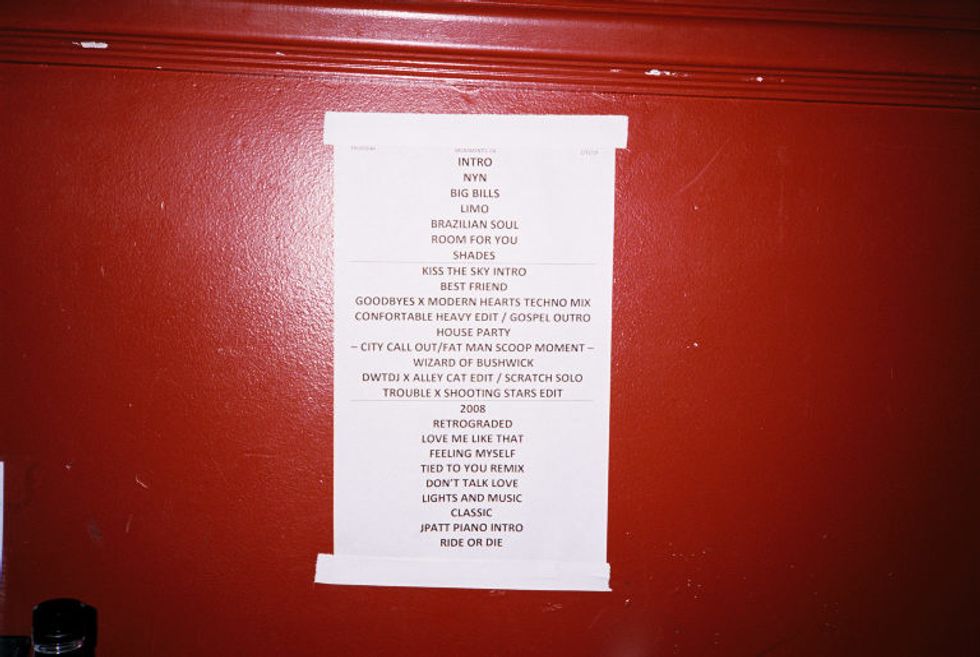 INTRO
NYN
BIG BILLS
LIMO
BRAZILIAN SOUL
ROOM FOR YOU
SHADES
KISS THE SKY INTRO
BEST FRIEND
GOODBYES X MODERN HEARTS TECHNO MIX
CONFORTABLE HEAVY EDIT / GOSPEL OUTRO
HOUSE PARTY
– CITY CALL OUT/FAT MAN SCOOP MOMENT –
WIZARD OF BUSHWICK
DWTDJ X ALLEY CAT EDIT / SCRATCH SOLO
TROUBLE X SHOOTING STARS EDIT
2008
RETROGRADED
LOVE ME LIKE THAT
FEELING MYSELF
TIED TO YOU REMIX
DON'T TALK LOVE
LIGHTS AND MUSIC
CLASSIC
JPATT PIANO INTRO
RIDE OR DIE